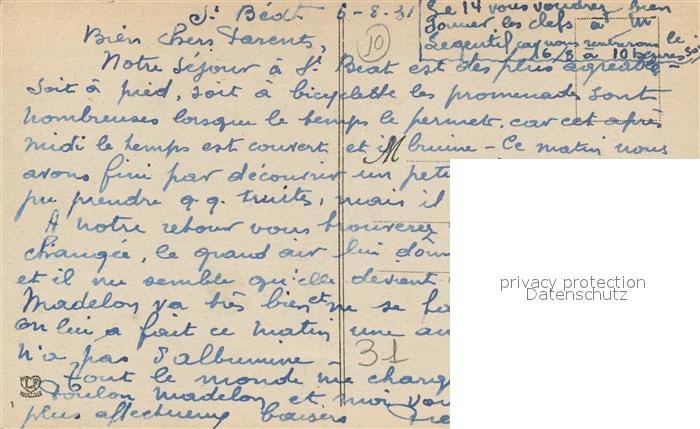 St Béat 6-8-31
Le 14 vous voudrez bien
donner les clefs à Mr
Legentil car nous rentrerons le
16/8 à 10 heures soir
10
Bien chers Parents,
Notre séjour à St Béat est des plus agréable -
soit à pied, soit à bicyclette les promenades sont
nombreuses lorsque le temps le permet, car cet après
midi le temps est couvert et il bruine - Ce matin nous
M
avons fini par découvrir un peti
pu prendre q.q. truites, mais il
A notre retour vous trouverez
changée, le grand air lui donn
et il me semble qu'elle devient
Madelon va très bien et ne se
on lui a fait ce matin une
n'a pas d'albumine -
31
tout le monde me charg
Madelon et moi vou
plus affectueux baisers
privacy protection
Datenschutz